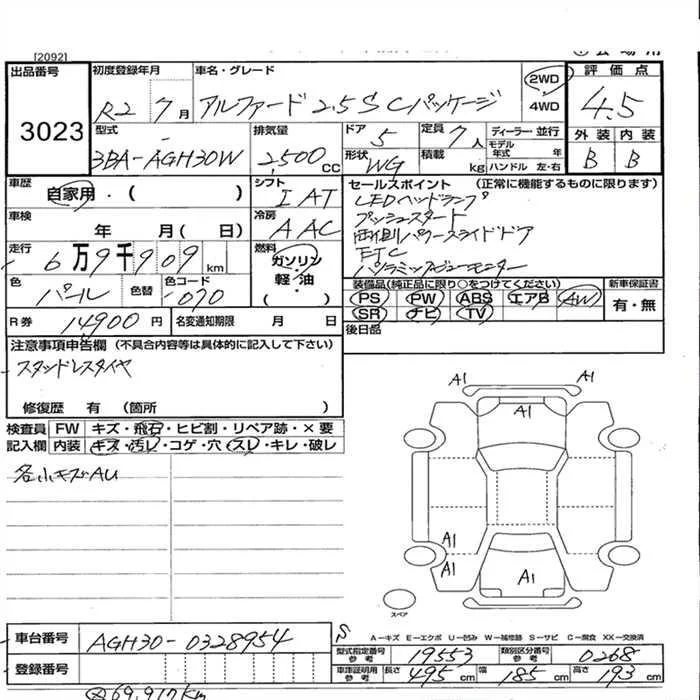 [2092]
出品番号 初度登録年月 車名・グレード 2WD 評価点
3023 R2 7月 アルファード 2.5 S Cパッケージ 4WD 4.5
型式 排気量 ドア 5 定員 7人 ディーラー・並行 外装 内装
3BA-AGH30W 2,500CC 形状 WG 積載 kg モデル年式 年 B B
ハンドル 左・右
車歴 自家用・( ) シフト I AT セールスポイント (正常に機能するものに限ります)
LEDヘッドランプ
車検 年 月( 日) 冷房 AAC プッシュスタート
両側パワースライドドア
走行 6万9千909km 燃料 ガソリン・軽・油 ( ) ETC
パノラミックビューモニター
色 パール 色替 色コード 070 装備品(純正品に限り○をつけてください) 新車保証書
PS PW ABS エアB AW 有・無
R券 14900円 名変通知期限 月 日 SR ナビ TV
後日品
注意事項申告欄 (不具合内容等は具体的に記入して下さい)
スタッドレスタイヤ
修復歴 有 (箇所 )
検査員 FW キズ・飛石・ヒビ割・リペア跡・×要
記入欄 内装 キズ・汚レ・コゲ・穴・スレ・キレ・破レ
各小キズAU
A1 A1
A1
A1
A1 A1
スペア
車台番号 AGH30-0328954 S A-キズ E-エクボ U-凹み W-補修跡 S-サビ C-腐食 XX-交換済
登録番号 型式指定番号 参考 19553 類別区分番号 参考 0268
車庫証明用 参考 長さ 495cm 幅 185cm 高さ 193cm
69,917km